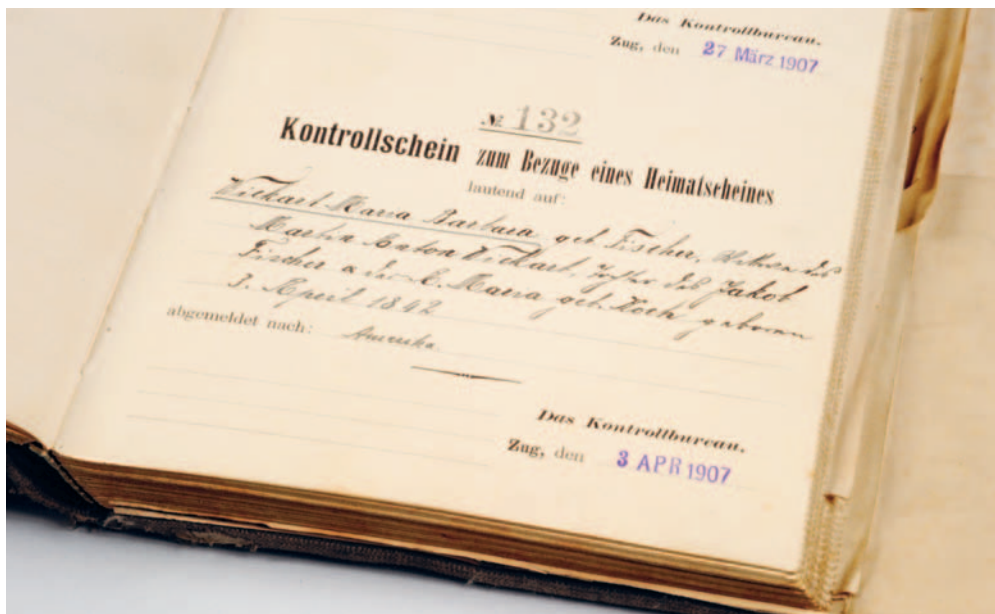 Das Kontrollbureau.
Zug, den 27 März 1907
№ 132
Kontrollschein zum Bezuge eines Heimatscheines
lautend auf:
Wickart Maria Barbara geb. Fischer, Witwe des
Martin Anton Wickart, Tochter des Jakob
Fischer & der A. Maria geb. Koch geboren
3. April 1842
abgemeldet nach: Amerika.
Das Kontrollbureau.
Zug, den 3 APR 1907